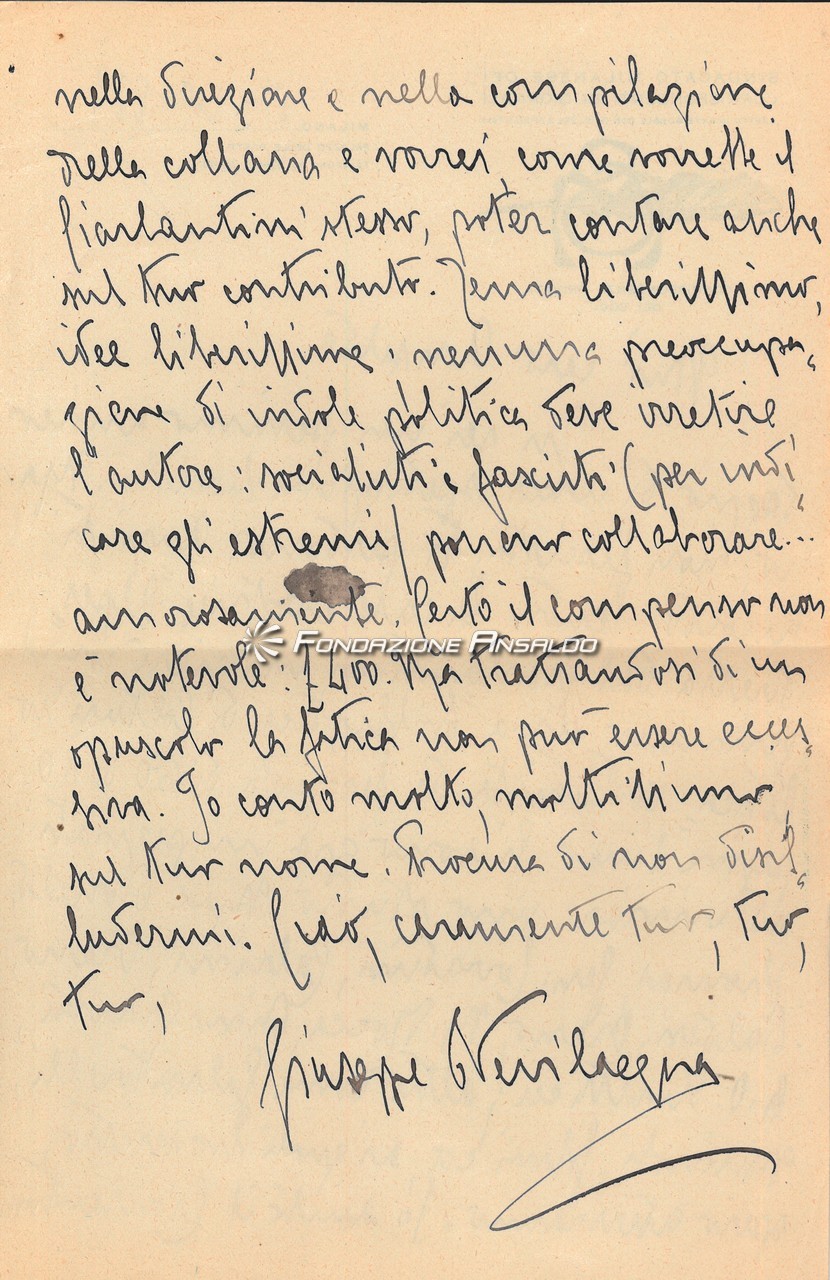 nella direzione e nella compilazione
della collana e vorrei, come vorrebbe il
Ciarlantini stesso, poter contare anche
sul tuo contributo. Tema liberissimo,
idee liberissime. nessuna preoccupa„
zione di indole politica deve irretire
l'autore: socialisti e fascisti (per indi„
care gli estremi) possono collaborare...
amorosamente. Certo il compenso non
è notevole: £ 400. Ma trattandosi di un
opuscolo la fatica non può essere ecces„
siva. Io conto molto, moltissimo,
sul tuo nome. Procura di non disil„
ludermi. Ciao, caramente tuo, tuo,
tuo,
Giuseppe Bevilacqua
FONDAZIONE ANSALDO